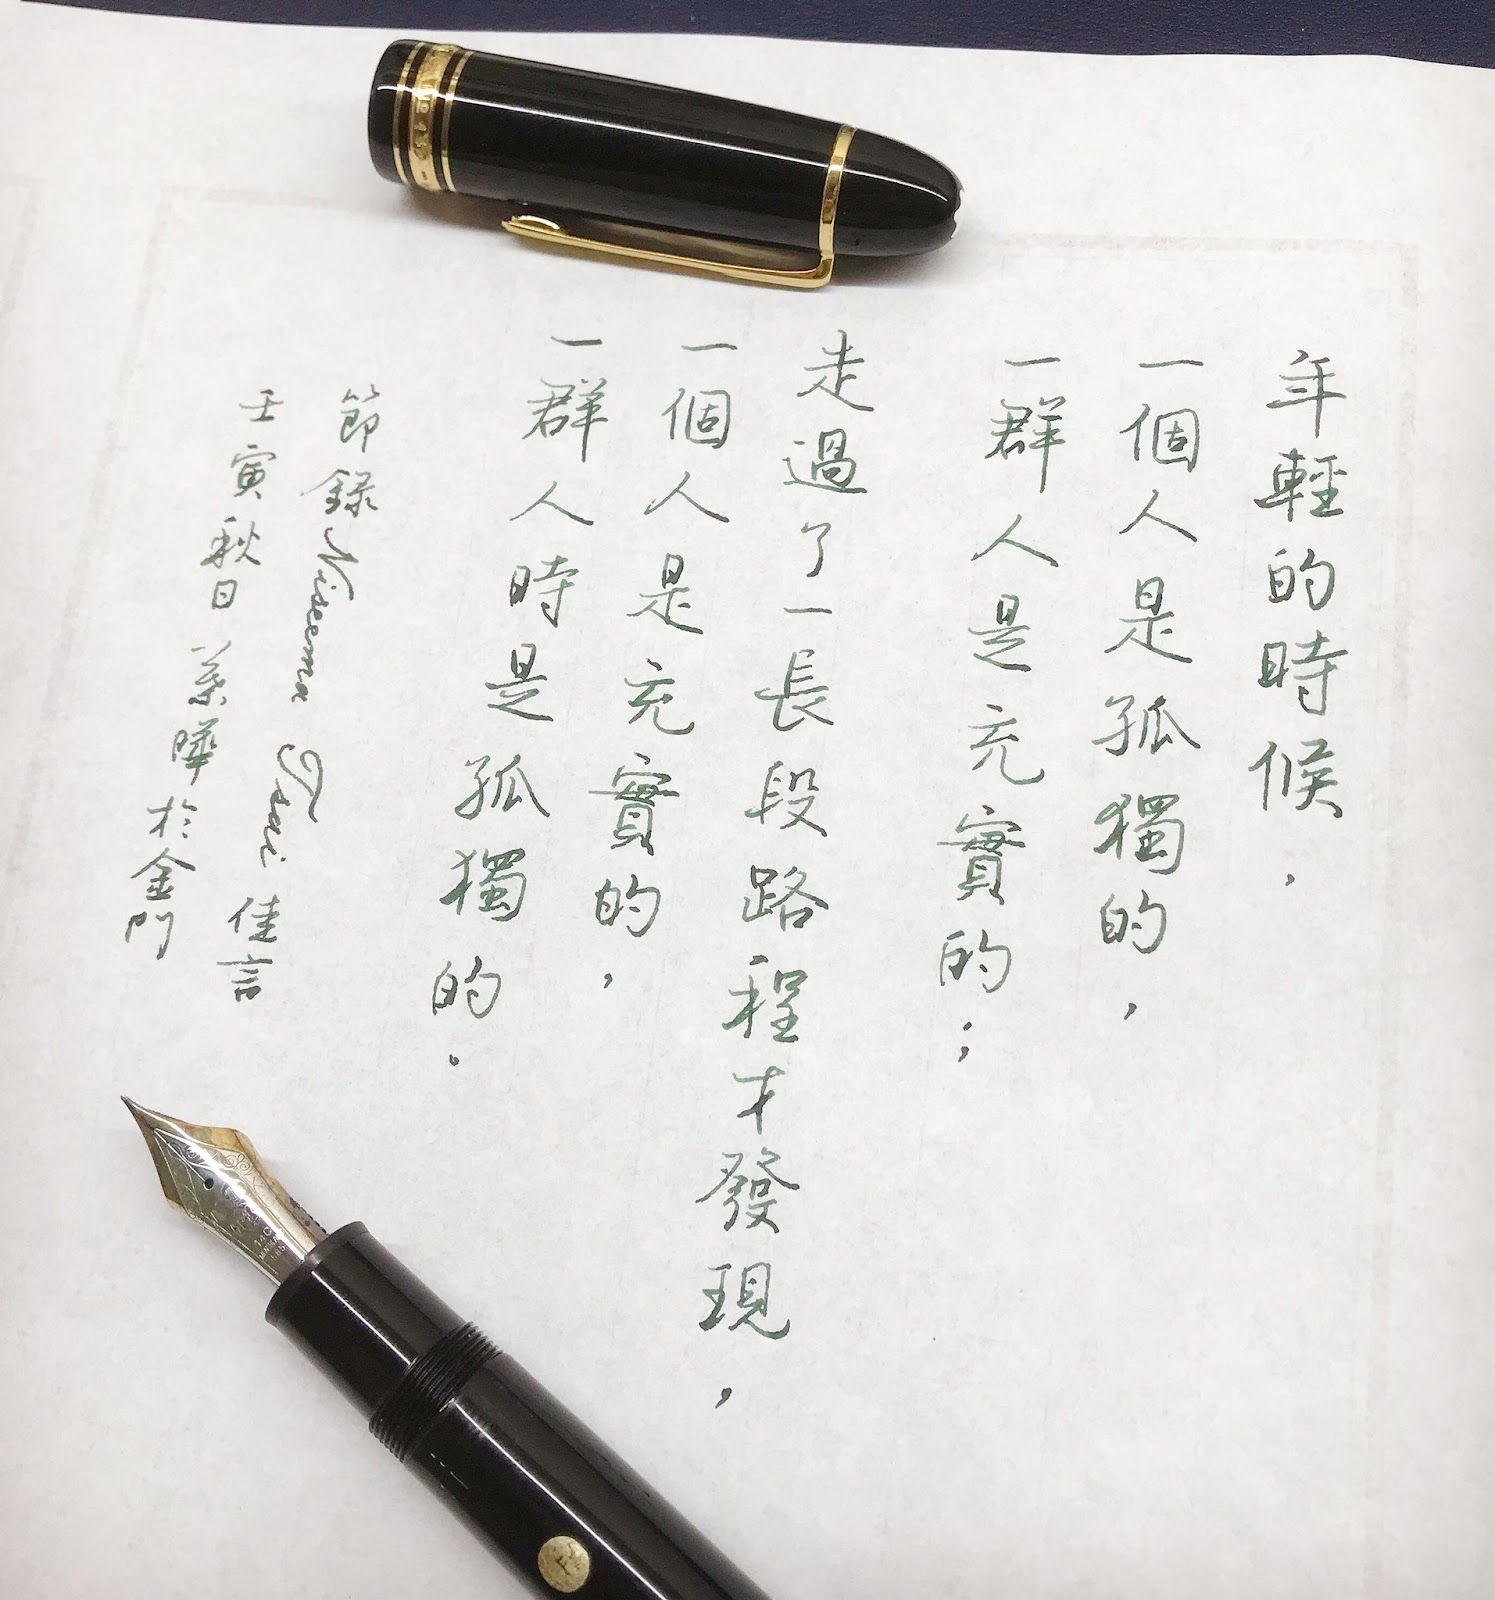 年輕的時候，
一個人是孤獨的，
一群人是充實的；
走過了一長段路程才發現，
一個人是充實的，
一群人時是孤獨的．
節錄Niseema Tsai 佳言
壬寅秋日 葉曄於金門
14C
F